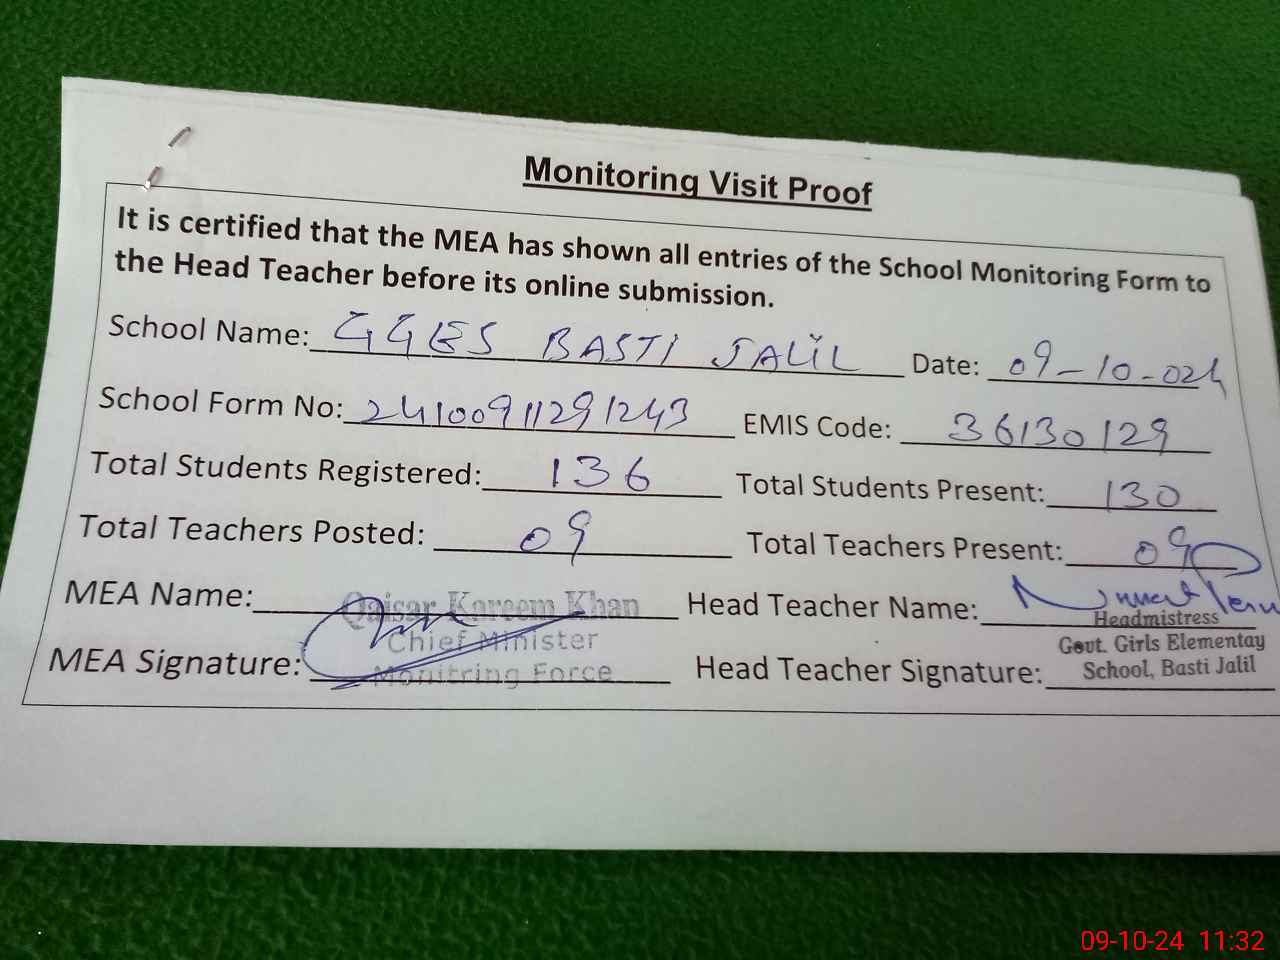 Monitoring Visit Proof
It is certified that the MEA has shown all entries of the School Monitoring Form to
the Head Teacher before its online submission.
School Name: GGES BASTI JALIL Date: 09-10-024
School Form No: 24100911291243 EMIS Code: 36130129
Total Students Registered: 136 Total Students Present: 130
Total Teachers Posted: 09 Total Teachers Present: 09
MEA Name: Qaisar Kareem Khan Head Teacher Name:
Chief Minister Headmistress
MEA Signature: Monitring Force Head Teacher Signature: Govt. Girls Elementay
School, Basti Jalil
09-10-24 11:32